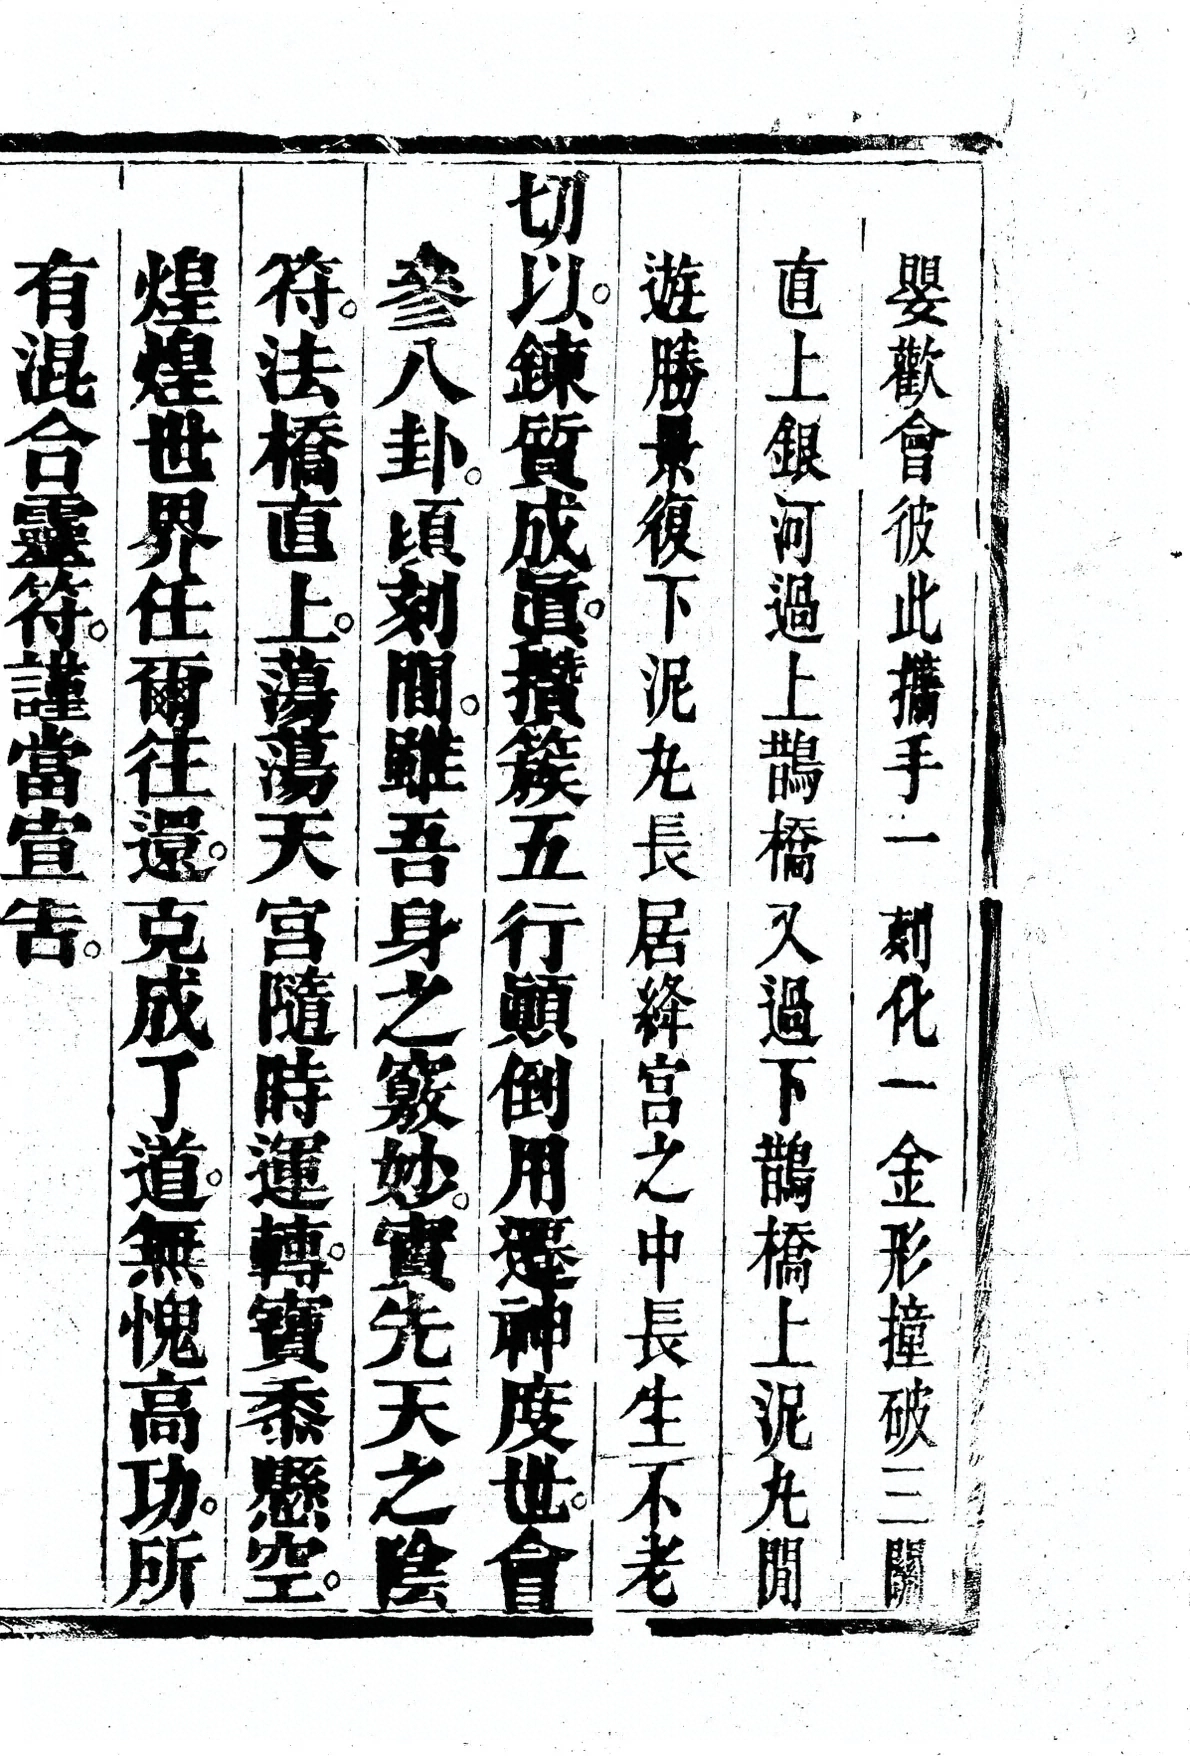 嬰歡會彼此攜手一刻化一金形撞破三關
直上銀河過上鵲橋又過下鵲橋上泥丸閒
遊勝景復下泥丸長居絳宮之中長生不老
切以。鍊質成眞。攢簇五行顚倒用還神度世。會
參八卦。頃刻間。雖吾身之竅妙。實先天之陰
符。法橋直上。蕩蕩天宮隨時運轉。寶黍懸空。
煌煌世界任爾往還。克成了道。無愧高功。所
有混合靈符。謹當宣告。